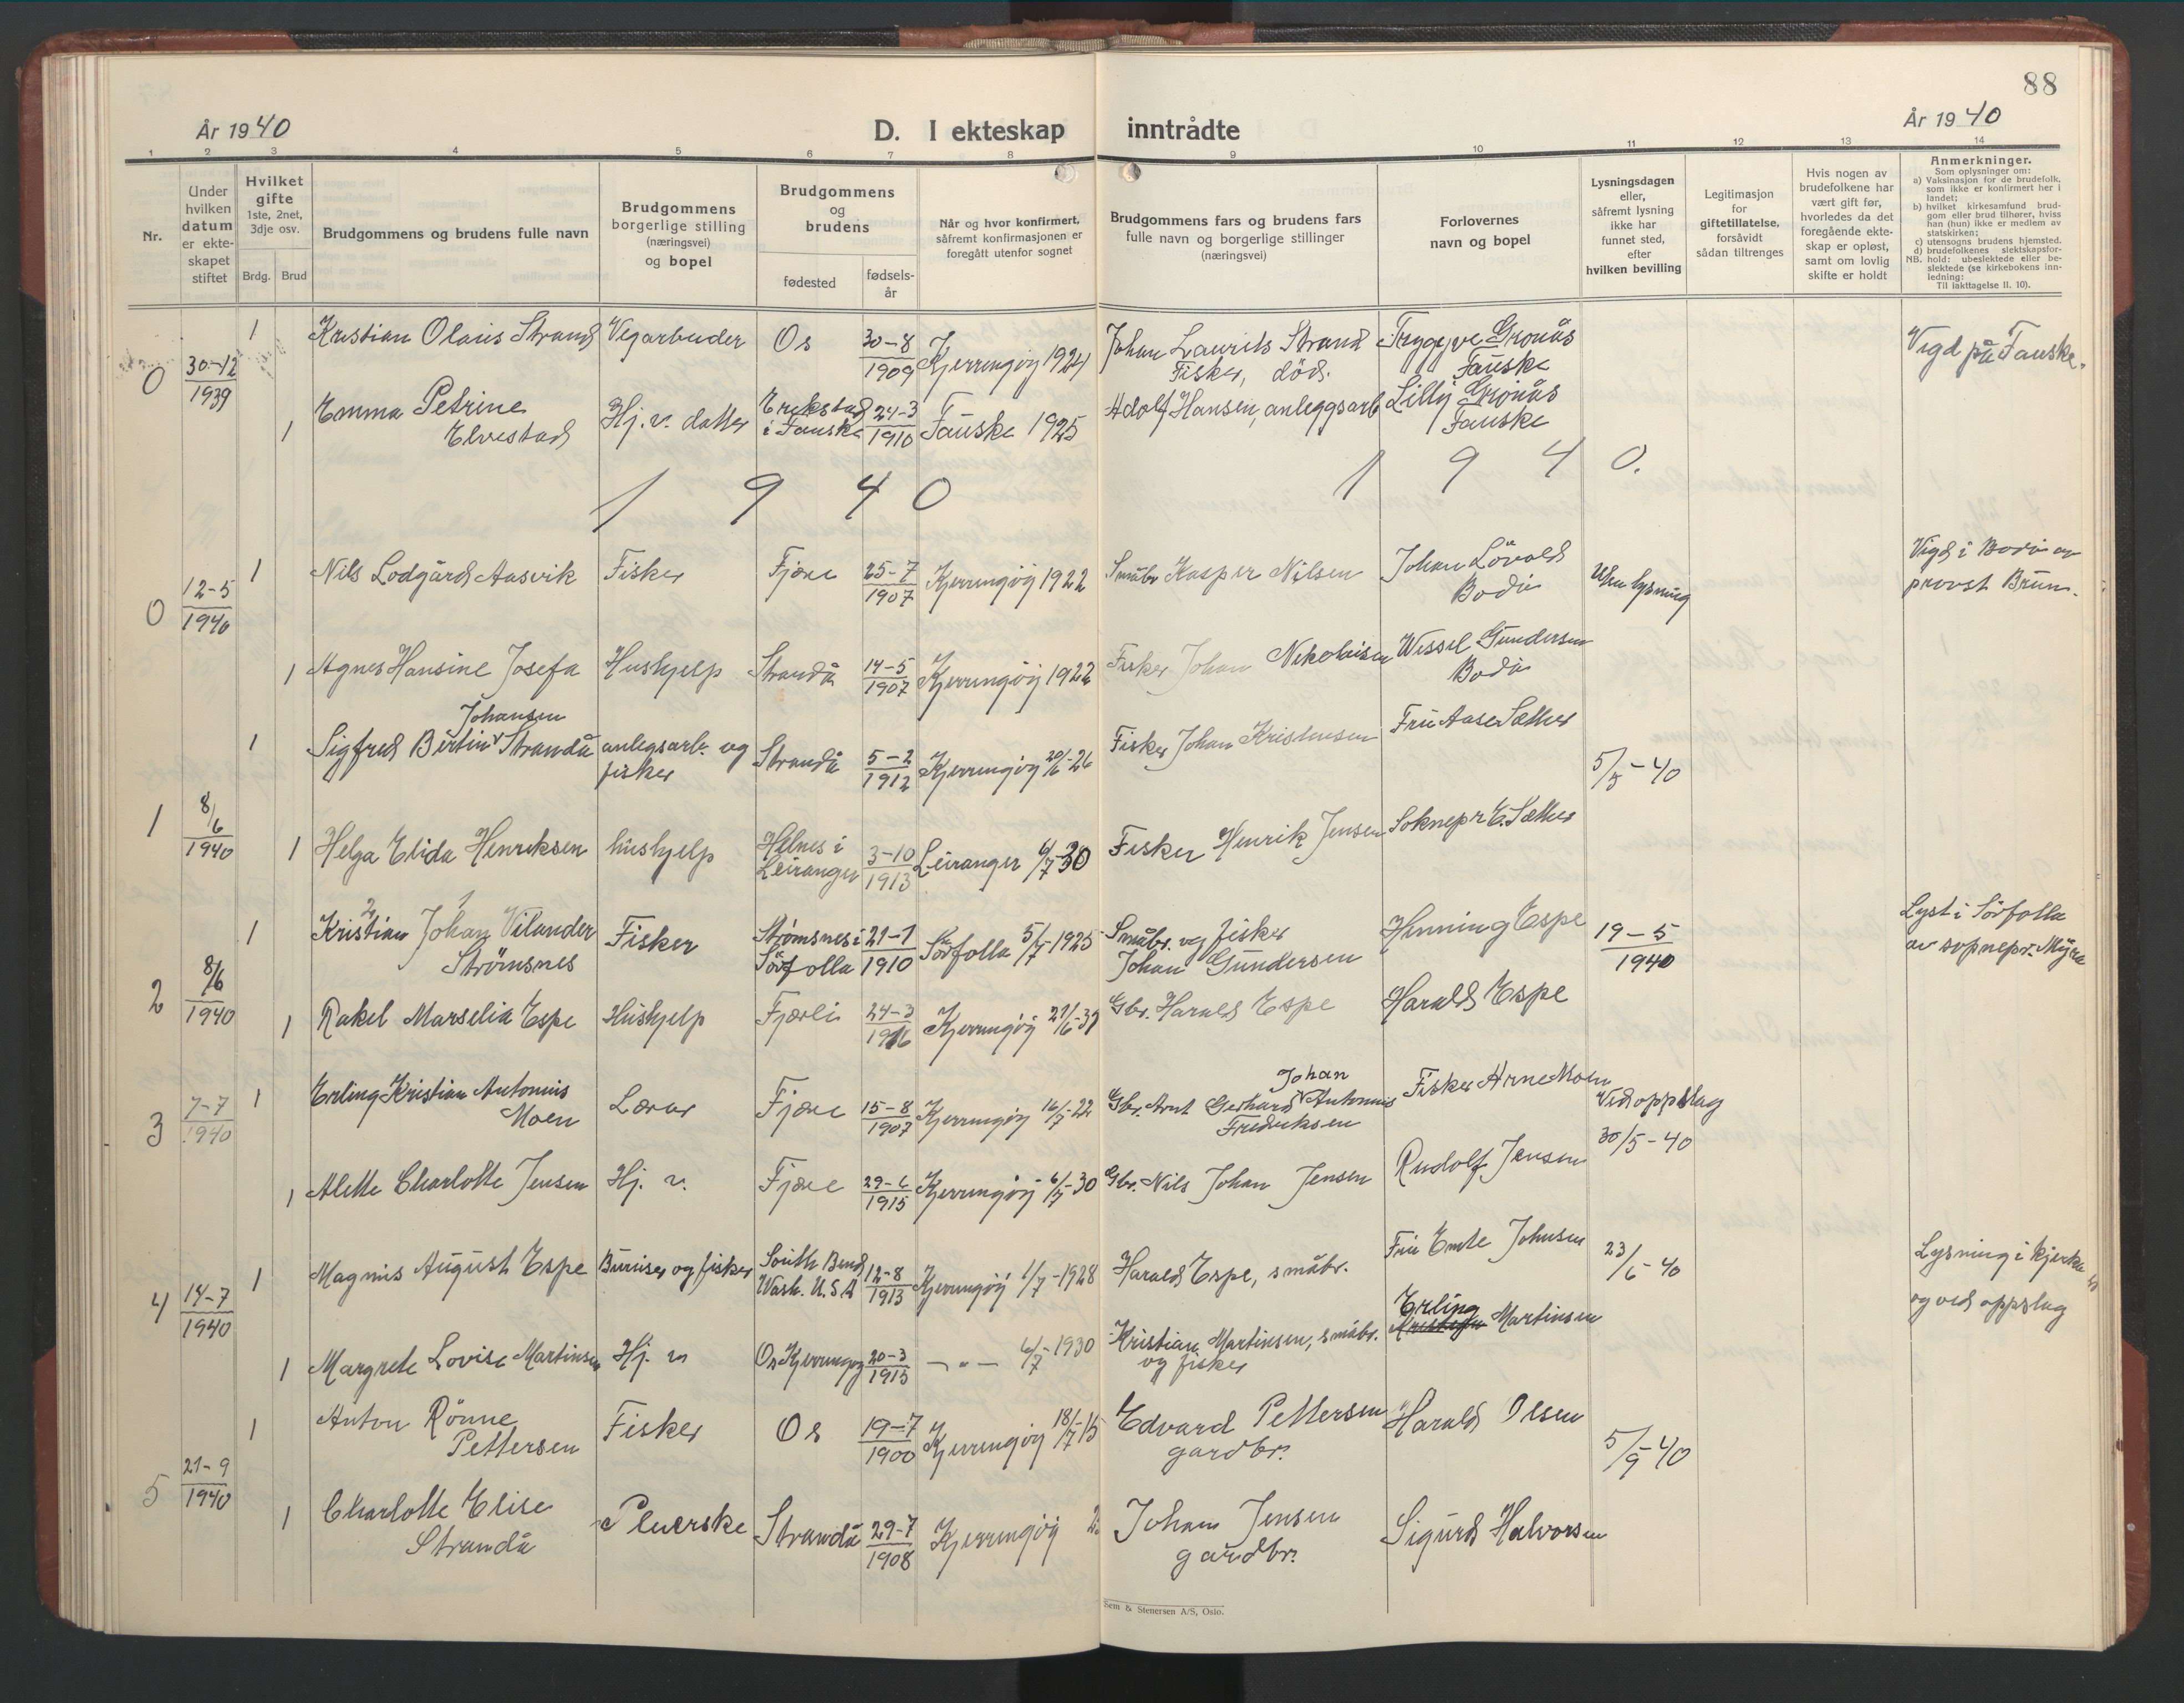 88
År 1940
D. I ekteskap inntrådte
År 1940
1 2 3 4 5 6 7 8 9 10 11 12 13 14
Nr.
Under hvilken datum er ekte-skapet stiftet
Hvilket gifte 1ste, 2net, 3dje osv.
Brdg. Brud
Brudgommens og brudens fulle navn
Brudgommens borgerlige stilling (næringsvei) og bopel
Brudgommens og brudens
fødested
fødsels-år
Når og hvor konfirmert, såfremt konfirmasjonen er foregått utenfor sognet
Brudgommens fars og brudens fars fulle navn og borgerlige stillinger (næringsvei)
Forlovernes navn og bopel
Lysningsdagen eller, såfremt lysning ikke har funnet sted, efter hvilken bevilling
Legitimasjon for giftetillatelse, forsåvidt sådan tiltrenges
Hvis nogen av brudefolkene har vært gift før, hvorledes da det foregående ekte-skap er opløst, samt om lovlig skifte er holdt
Anmerkninger.
Som oplysninger om:
a) Vaksinasjon for de brudefolk, som ikke er konfirmert her i landet;
b) hvilket kirkesamfund brud-gom eller brud tilhører, hviss han (hun) ikke er medlem av statskirken;
c) utensogns brudens hjemsted.
d) brudefolkenes slektskapsfor-hold: ubeslektede eller be-slektede (se kirkebokens inn-ledning:
NB.
Til iakttagelse II. 10).
0 30-12 1939
1 Kristian Olaus Strand Vegarbeider Os 30-8 1909 Kjerringöy 1924 Johan Laurits Strand Fisker, död. Trygve Gronås Fauske Vigd på Fauske.
1 Emma Petrine Elvestad Hj. v. datter Erikstad i Fauske 24-3 1910 Fauske 1925 Adolf Hansen, anleggsarb Lilly Gronås Fauske
1 9 4 0 1 9 4 0.
0 12-5 1940
1 Nils Lodgård Aasvik Fisker Fjære 25-7 1907 Kjerringöy 1922 Småbr Kasper Nilsen Johan Lövold Bodö Uten lysning Vigd i Bodö av provst Brun.
1 Agnes Hansine Josefa Hushjelp Strandå 14-5 1907 Kjerringöy 1922 Fisker Johan Nikolaisen Wessel Gundersen Bodö
1 8/6 1940
1 Sigfred Bertin Johansen Strandå anlegsarb. og fisker Strandå 5-2 1912 Kjerringöy 20/6-26 Fisker Johan Kristensen Fru Aase Sæther 5/5-40
1 Helga Elida Henriksen hushjelp Helnes i Leiranger 3-10 1913 Leiranger 6/7-30 Fisker Henrik Jensen Soknepr E. Sæther
2 8/6 1940
1 Kristian 2 Johan 1 Vilander Strömsnes Fisker Strömsnes i Sörfolla 21-1 1910 Sörfolla 5/7-1925 Småbr. og fisker Johan Gundersen Henning Espe 19-5 1940 Lyst i Sörfolla av sognepr. Myra
1 Rakel Marselia Espe Hushjelp Fjærli 24-3 1916 Kjerringöy 21/6-31 Gbr. Harald Espe Harald Espe
3 7-7 1940
1 Erling Kristian Antonius Moen Lærer Fjære 15-8 1907 Kjerringöy 16/7-22 Gbr. Arnt Gerhard Johan Antonius Fredriksen Fisker Arne Moen Ved oppslag 30/5-40
1 Alette Charlotte Jensen Hj. v. Fjære 29-6 1915 Kjerringöy 6/7-30 Gbr. Nils Johan Jensen Rudolf Jensen
4 14-7 1940
1 Magnus August Espe Bureiser og fisker South Bend Wash. U.S.A 12-8 1913 Kjerringöy 1/7-1928 Harald Espe, småbr. Fru Emte Johnsen 23/6-40 Lysning i kjerke og ved oppslag
1 Margrete Lovise Martinsen Hj. v Os Kjerringöy 20-3 1915 — " — 6/7-1930 Kristian Martinsen, småbr. og fisker Erling Martinsen
5 21-9 1940
1 Anton Rönne Pettersen Fisker Os 19-7 1900 Kjerringöy 18/7-15 Edvard Pettersen gardbr. Harald Olsen 5/9-40
1 Charlotte Elise Strandå Pleierske Strandå 29-7 1908 Kjerringöy Johan Jensen gårdbr. Sigurd Halvorsen
Sem & Stenersen A/S, Oslo.